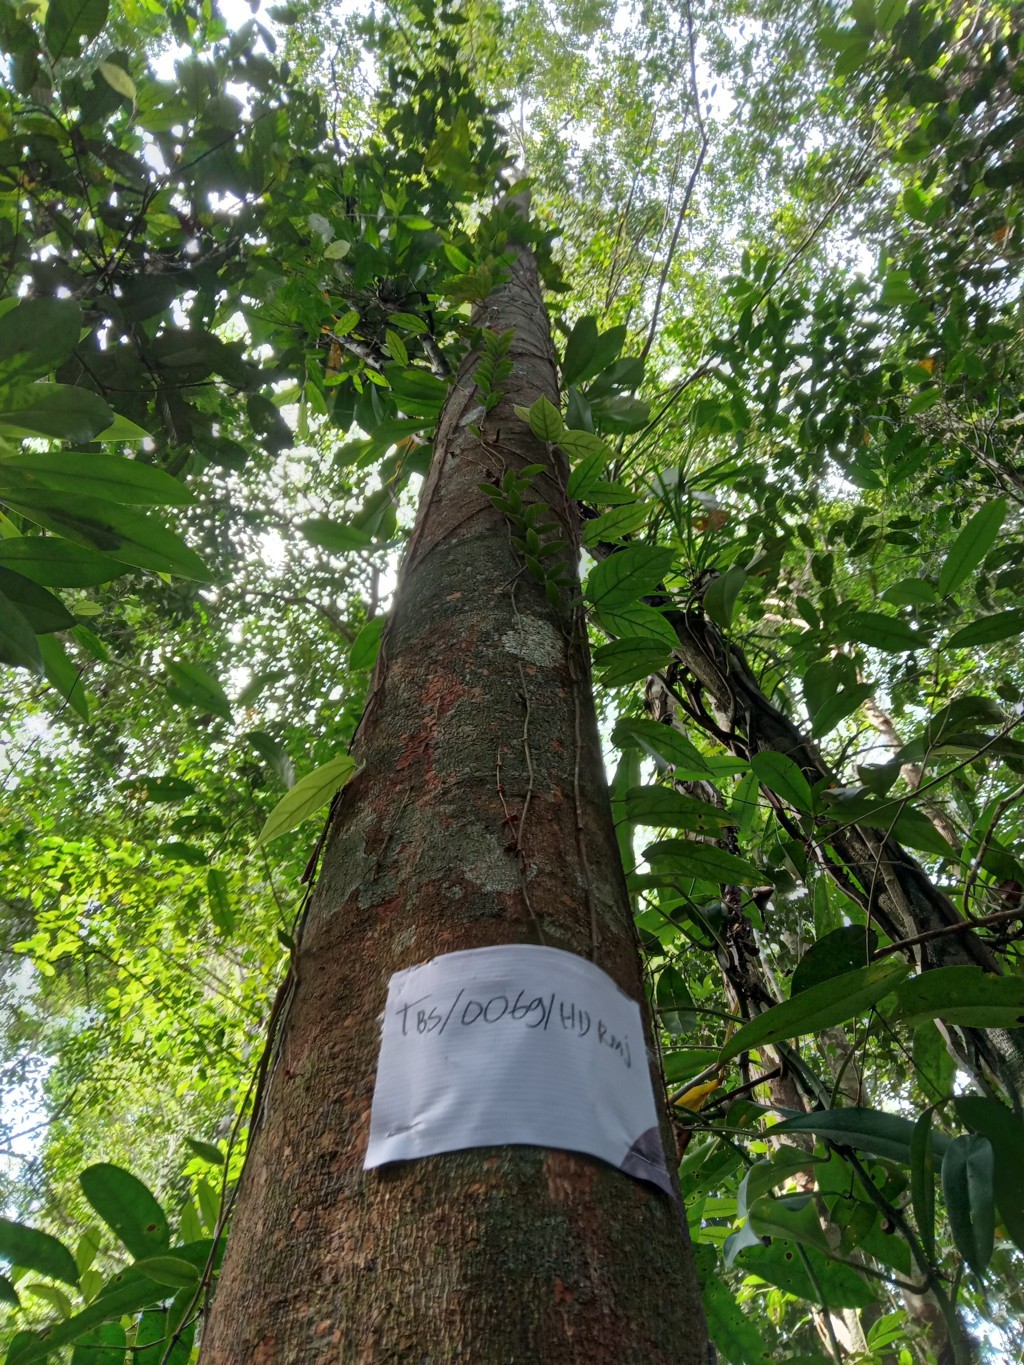 TBS/0069/HD Rmj